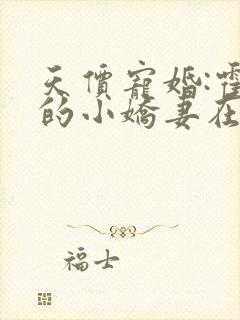 天價寵婚:霍
的小嬌妻在
福士